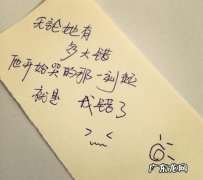 无论她有
多大错
从她开始哭的那一刻起
就是 我错了
广东龙网